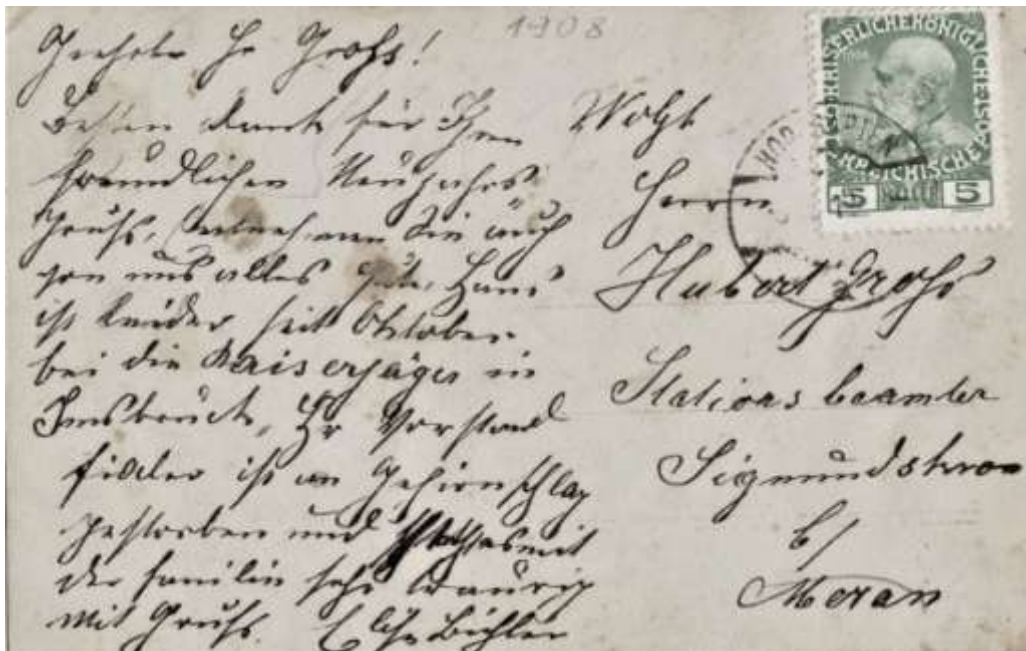 1908
Geehrter Hr Grohs!
Besten Dank für Ihre
freundlichen Neujahrs-
Gruß, entnehmen Sie auch
von uns alles Gute, Hans
ist leider seit Oktober
bei die Kaiserjäger in
Innsbruck, Hr Vorstand
ist an Gehirnschlag
gestorben und mit
der Familie sehr traurig
Mit Gruß. Bichler
Wohl
Herrn
Hubert Grohs
Stations beamter
Sigmundskron
b/
Meran
KAISERLICHE KÖNIGLICHE ÖSTERREICHISCHE
5 5